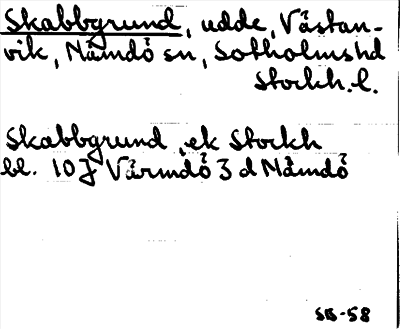 Skabbgrund, udde, Västan-
vik, Nämdö sn, Sotholms hd
Stockh. l.
Skabbgrund, ek Stockh
bl. 10J Värmdö 3 d Nämdö
SB-58